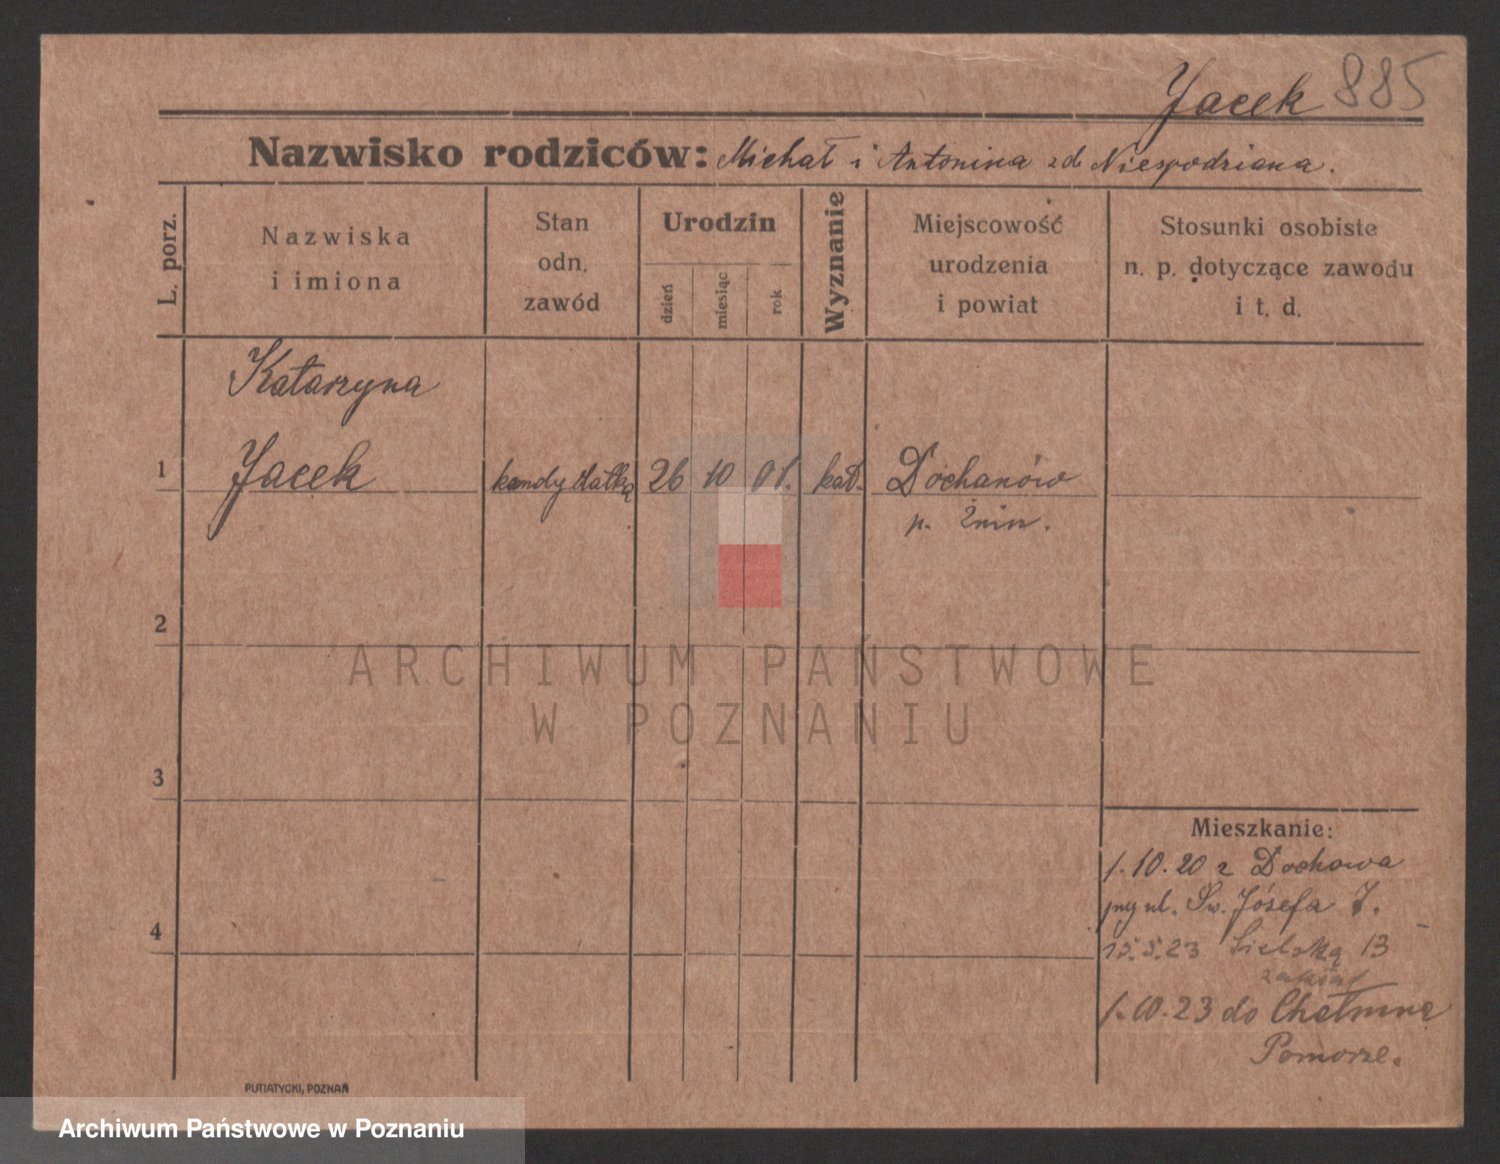 Jacek 885
Nazwisko rodziców: Michał i Antonina zd Niespodziana.
L. porz.
Nazwiska
i imiona
Stan
odn.
zawód
Urodzin
dzień
miesiąc
rok
Wyznanie
Miejscowość
urodzenia
i powiat
Stosunki osobiste
n. p. dotyczące zawodu
i t. d.
Katarzyna
1 Jacek kandydatką 26 10 01. kat. Dochanów
p. Żnin.
2
ARCHIWUM PAŃSTWOWE
W POZNANIU
3
Mieszkanie:
1.10.20 z Dochowa
ul. Św. Józefa 7.
4
15.5.23 13
1.10.23 do
Pomorze.
PUTIATYCKI, POZNAŃ
Archiwum Państwowe w Poznaniu